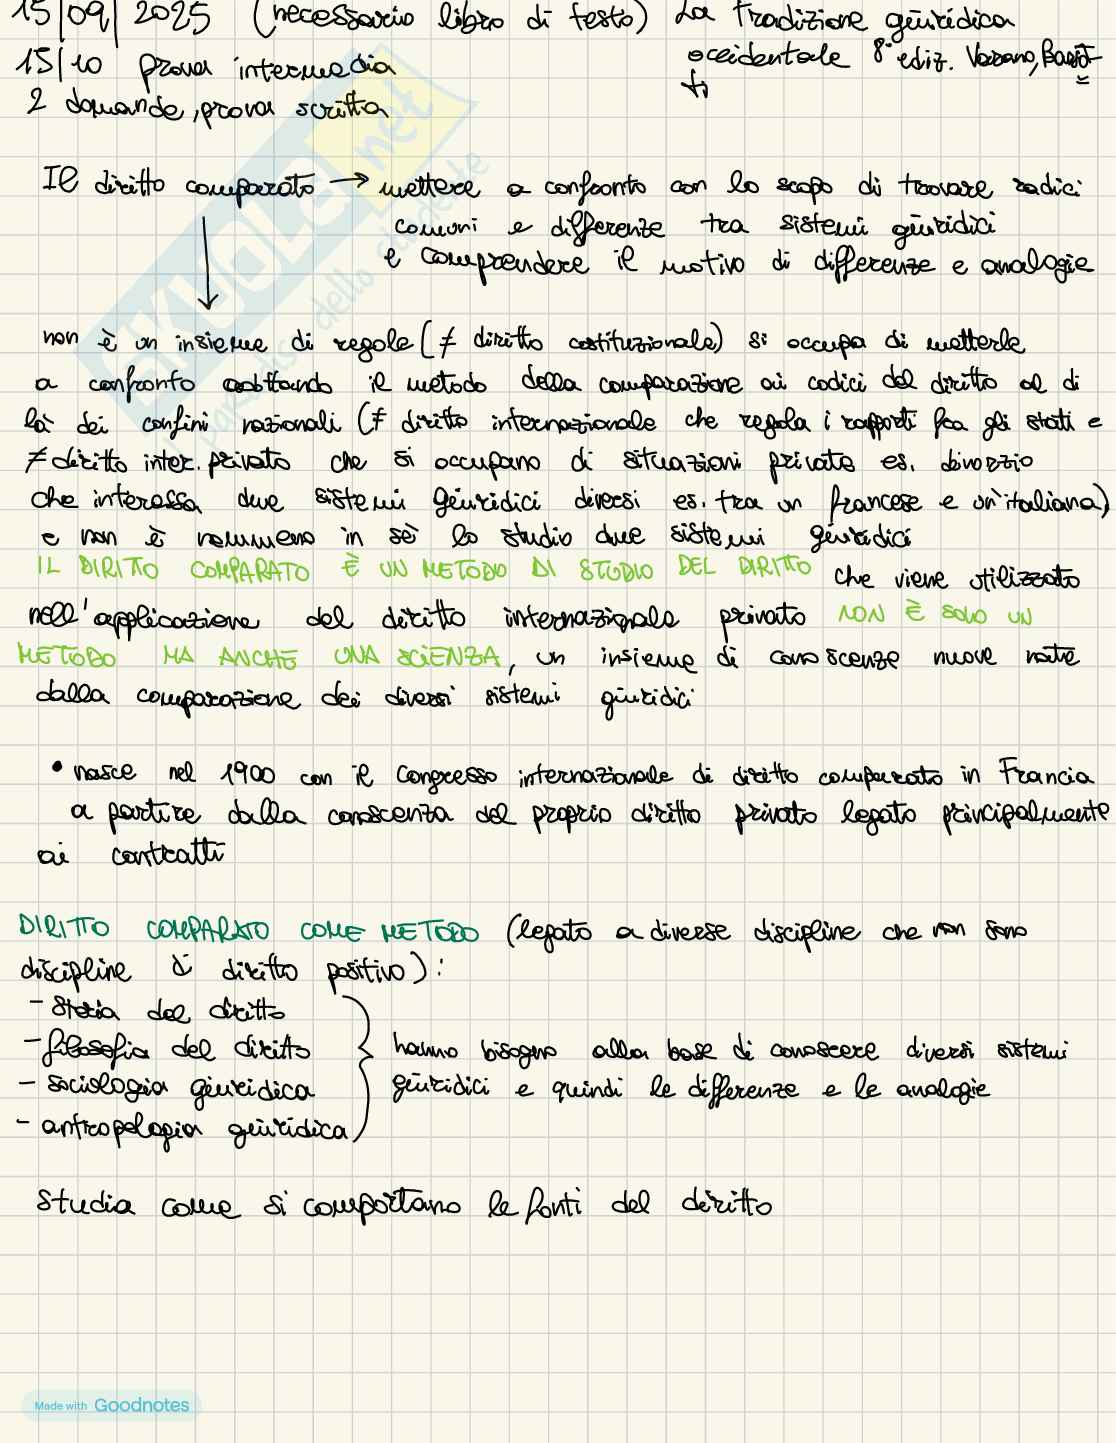 15/09/2025 (necessario libro di testo) La tradizione giuridica
occidentale 8° ediz. Varano, Barsot-
ti
15/10 prova intermedia
2 domande, prova scritta
Il diritto comparato → mettere a confronto con lo scopo di trovare radici
comuni e differenze tra sistemi giuridici
e comprendere il motivo di differenze e analogie
non è un insieme di regole (≠ diritto costituzionale) si occupa di metterle
a confronto adottando il metodo della comparazione ai codici del diritto al di
là dei confini nazionali (≠ diritto internazionale che regola i rapporti fra gli stati e
≠ diritto inter. privato che si occupano di situazioni private es. divorzio
che interessa due sistemi giuridici diversi es. tra un francese e un'italiana)
e non è nemmeno in sè lo studio due sistemi giuridici
IL DIRITTO COMPARATO È UN METODO DI STUDIO DEL DIRITTO che viene utilizzato
nell'applicazione del diritto internazionale privato NON È SOLO UN
METODO MA ANCHE UNA SCIENZA, un insieme di conoscenze nuove nate
dalla comparazione dei diversi sistemi giuridici
• nasce nel 1900 con il Congresso internazionale di diritto comparato in Francia
a partire dalla conoscenza del proprio diritto privato legato principalmente
ai contratti
DIRITTO COMPARATO COME METODO (legato a diverse discipline che non sono
discipline di diritto positivo):
- storia del diritto
- filosofia del diritto
- sociologia giuridica
- antropologia giuridica
hanno bisogno alla base di conoscere diversi sistemi
giuridici e quindi le differenze e le analogie
studia come si comportano le fonti del diritto
SKUOLA.net
paradiso dello studente
Made with Goodnotes